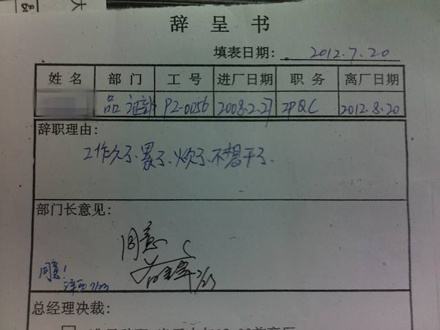 辞呈书
填表日期: 2012.7.20
姓名 部门 工号 进厂日期 职务 离厂日期
品证部 P2-0256 2008.2.27 IPQC 2012.8.20
辞职理由:
工作久了、累了、火灾了、不想干了.
部门长意见:
同意
同意! 7/23
总经理决裁: